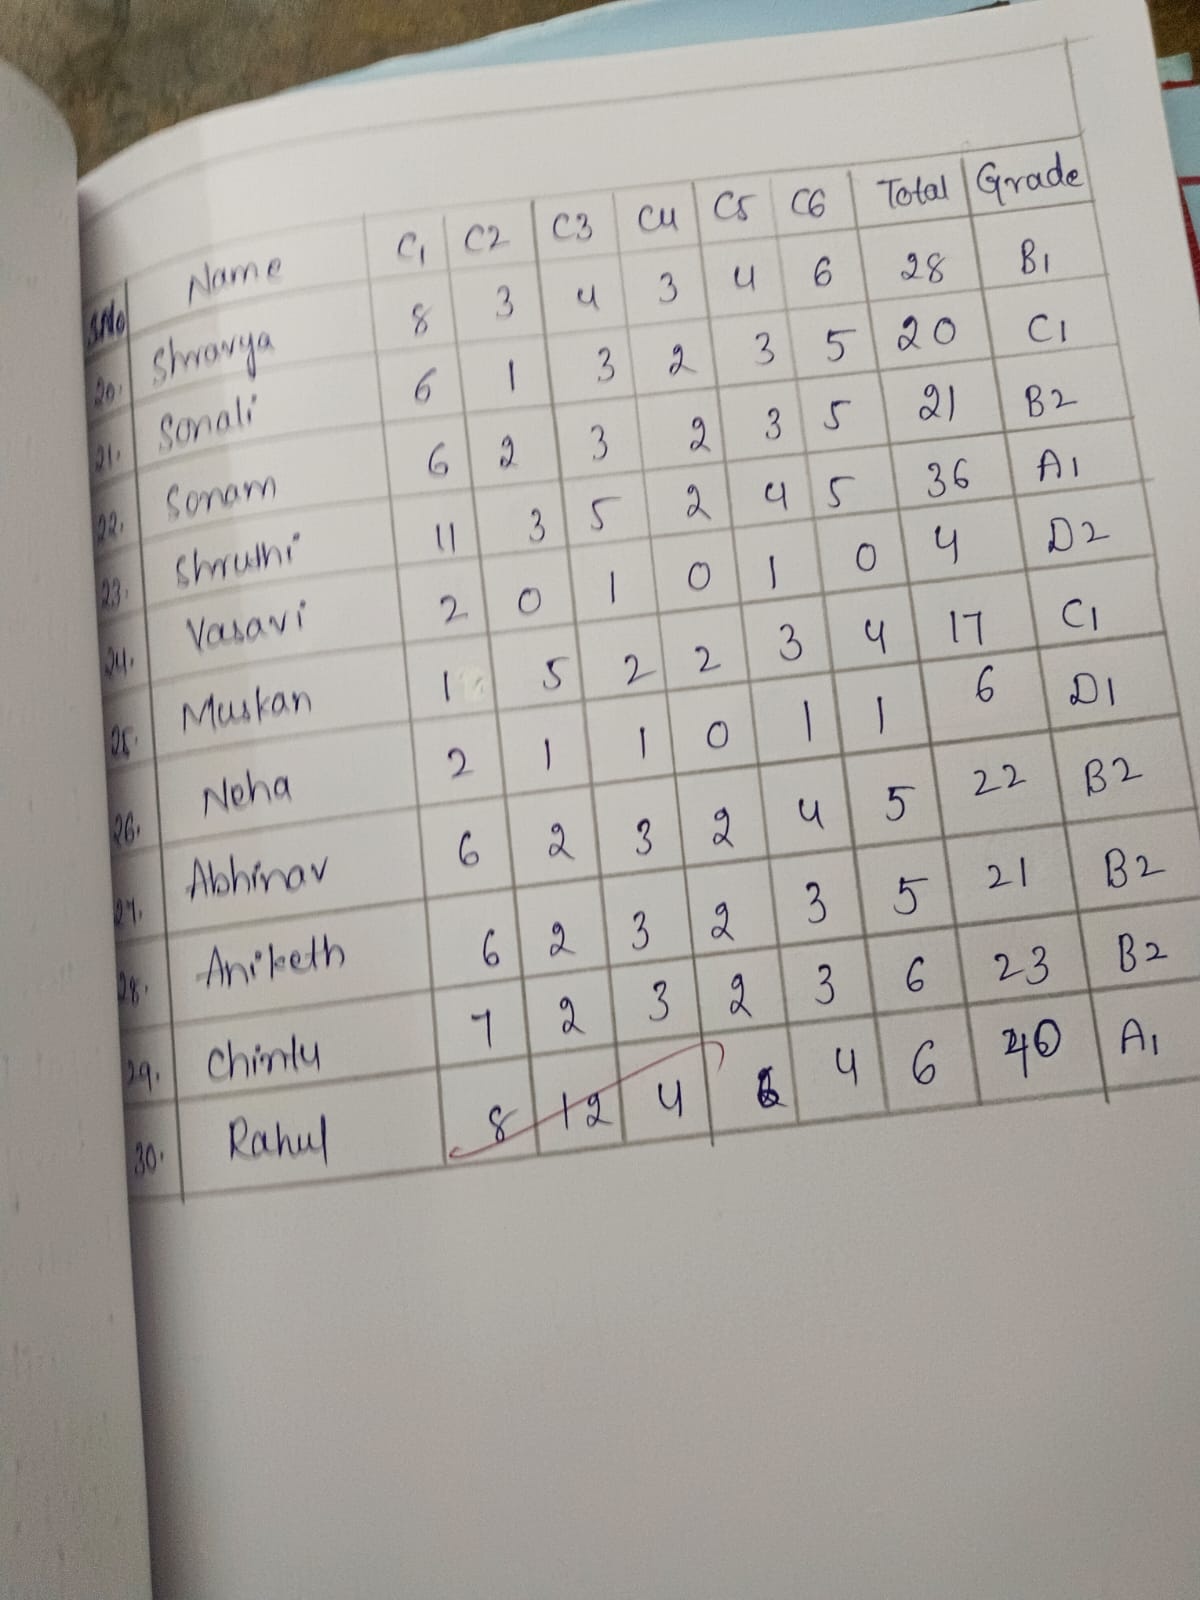 S.No Name C1 C2 C3 C4 C5 C6 Total Grade
20. Shravya 8 3 4 3 4 6 28 B1
21. Sonali 6 1 3 2 3 5 20 C1
22. Sonam 6 2 3 2 3 5 21 B2
23. Shruthi 11 3 5 2 4 5 36 A1
24. Vasavi 2 0 1 0 1 0 4 D2
25. Muskan 1 5 2 2 3 4 17 C1
26. Neha 2 1 1 0 1 1 6 D1
27. Abhinav 6 2 3 2 4 5 22 B2
28. Aniketh 6 2 3 2 3 5 21 B2
29. Chintu 7 2 3 2 3 6 23 B2
30. Rahul 8 12 4 6 4 6 40 A1